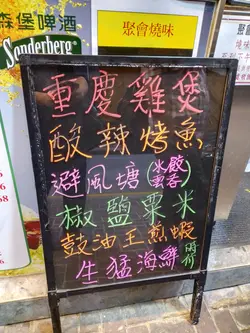 森堡啤酒
Sonderberg
聚會燒味
重慶雞煲
酸辣烤魚
避風塘(水餃 雲吞)
椒鹽粟米
鼓油王煎蝦 時價
生猛海鮮